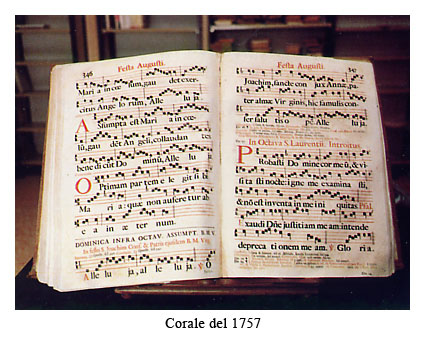 346
Festa Augusti.
Mari a in cœ lum, gau det exer-
citus Ange lo rum, Alle lu ja
ASsumpta est Mari a in cœ-
lũ, gau dẽt An geli, collaudan tes
bene di cũt Do minũ, Alle lu
OPtimam par tem e le git si bi
Ma ri a: quæ non aufere tur ab
e a in æ ter num.
DOMINICA INFRA OCTAV. ASSUMPT. B. V.
In festo S. Joachim Conf. & Patris ejusdem B. M. Virg.
Alle lu ja, al le lu ja. ℣ O
Festa Augusti.
347
Joachim, sancte con jux Annæ, pa-
ter almæ Vir ginis, hic famulis con-
fer salu tis o pẽ. Alle lu ja
In Octava S. Laurentii. Introitus.
PRobasti Do mine cor me ũ, & vi-
si ta sti nocte: igne me examina sti,
& nõ est inventa in me ini quitas Psal.
Exaudi Dñe justiti am me am: intende
depreca ti onem me am. ℣. Glo ria
Corale del 1757